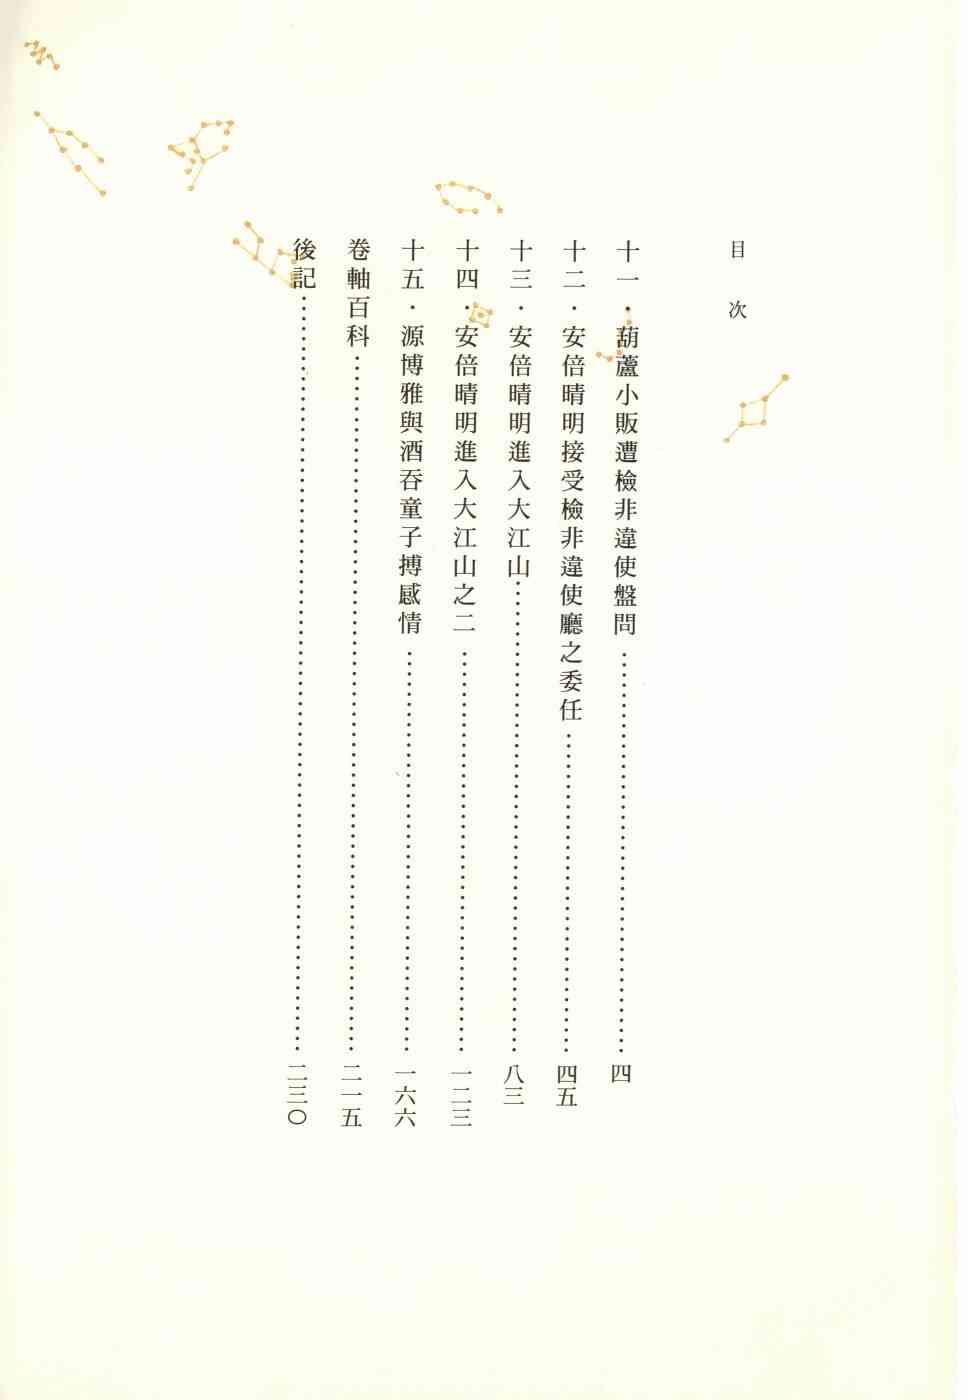 目　次
十一・葫蘆小販遭檢非違使盤問……………………四
十二・安倍晴明接受檢非違使廳之委任……………………四五
十三・安倍晴明進入大江山……………………八三
十四・安倍晴明進入大江山之二……………………一二三
十五・源博雅與酒吞童子搏感情……………………一六六
卷軸百科……………………二一五
後記……………………二三〇